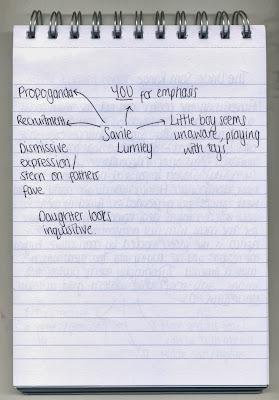 Propoganda
YOU for emphasis
Recruitment
Savile
Lumley
Little boy seems
unaware, playing
with toys
Dismissive
expression/
stern on fathers
fave.
Daughter looks
inquisitive